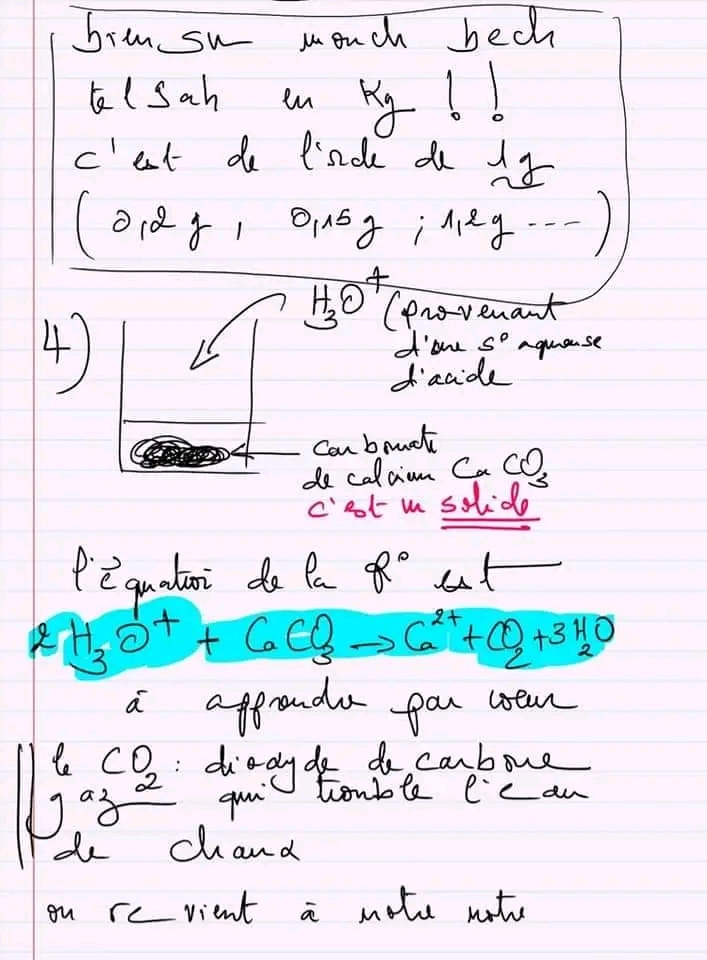 bien sur mouch bech
telsah en Kg !!
c'est de l'orde de 1g
(0,2g, 0,15g ; 1,2g ---)
4)
H3O+ (provenant
d'une s° aqueuse
d'acide
carbonate
de calcium CaCO3
c'est un solide
l'équation de la R° est
2H3O+ + CaCO3 → Ca2+ + CO2 + 3H2O
à apprendre par cœur
le CO2 : dioxyde de carbone
gaz qui trouble l'eau
de chaux
on revient à notre notre